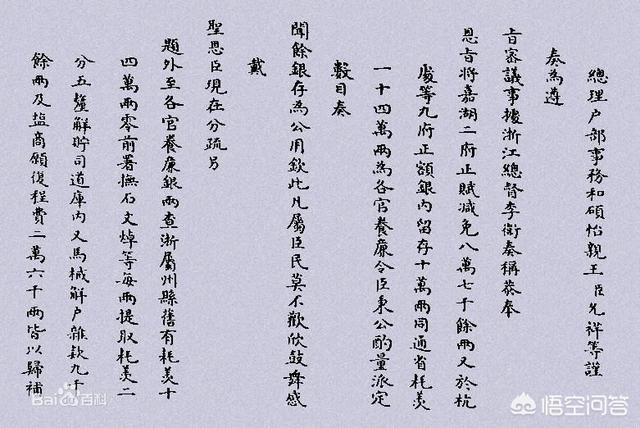 總理户部事務和碩怡親王臣允祥等謹
奏為遵
旨審議事據浙江總督李衛奏稱恭奉
恩旨將嘉湖二府正賦減免八萬七千餘兩又於杭
處等九府正額銀内留存十萬兩同通省耗羡
一十四萬兩為各官養廉令臣秉公酌量派定
數目奏
聞餘銀存為公用欽此凡屬臣民莫不歡欣鼓舞感
戴
聖恩臣現在分疏另
題外至各官養廉銀兩查浙屬州縣舊有耗羡十
四萬兩零前署撫石文焯等每兩提取耗羡二
分五釐解貯司道庫内又馬械解户雜欵九千
餘兩及塩商願復程費二萬六千兩皆以歸補
Bai百科
悟空问答